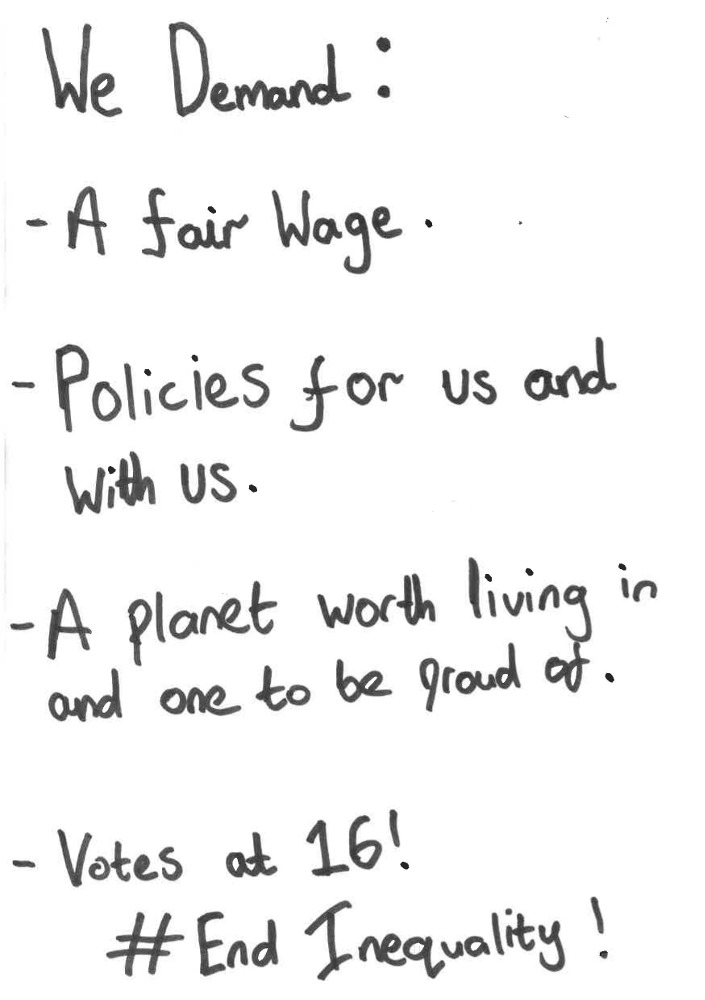 We Demand:
- A fair Wage.
- Policies for us and
with us.
- A planet worth living in
and one to be proud of.
- Votes at 16!
# End Inequality!